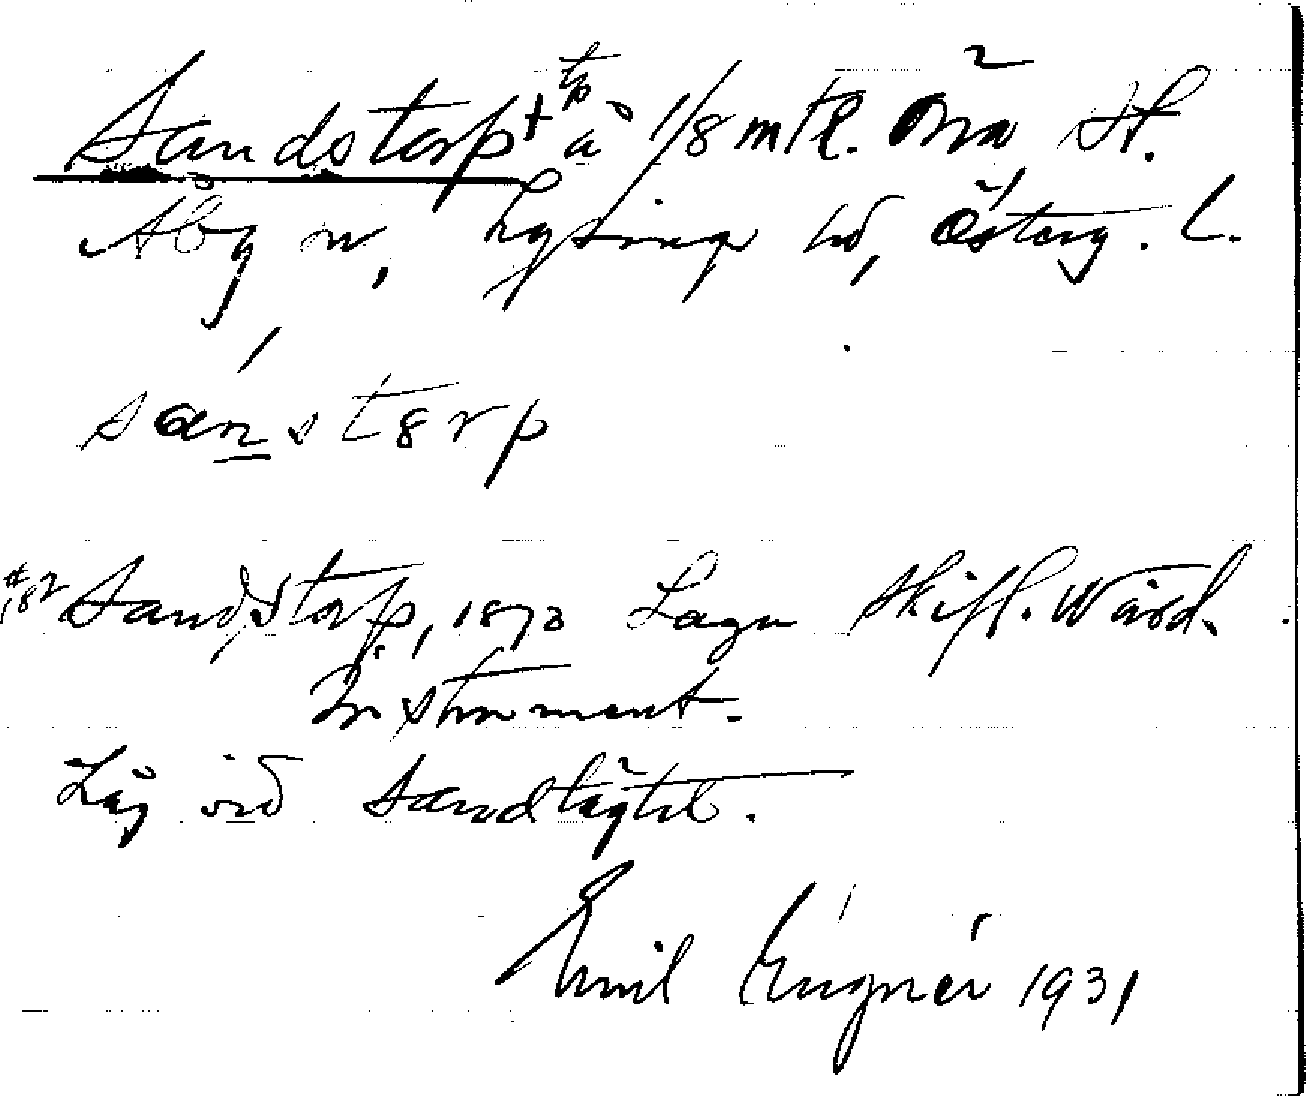 Sandstorp + tp å 1/8 mtl. Öna St.
Åby sn, Lysings hd, Österg. L.
sanstorp
Sandstorp, 1872 Laga Skift. Wärd.
Instrument.
Låg vid Sandtägtel.
Emil Eugnér 1931